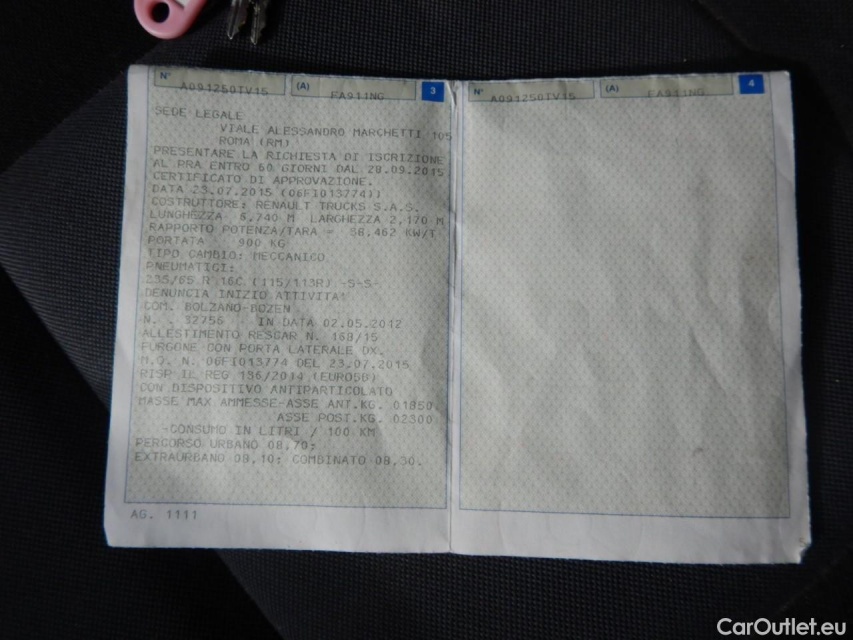 N° A091250TV15 (A) FA911NG 3
SEDE LEGALE
VIALE ALESSANDRO MARCHETTI 105
ROMA (RM)
PRESENTARE LA RICHIESTA DI ISCRIZIONE
AL PRA ENTRO 60 GIORNI DAL 28.09.2015
CERTIFICATO DI APPROVAZIONE.
DATA 23.07.2015 (06FI013774))
COSTRUTTORE: RENAULT TRUCKS S.A.S.
LUNGHEZZA 6,740 M LARGHEZZA 2,170 M
RAPPORTO POTENZA/TARA = 58,462 KW/T
PORTATA 900 KG
TIPO CAMBIO: MECCANICO
PNEUMATICI:
235/65 R 16C (115/113R) -S-S-
DENUNCIA INIZIO ATTIVITA'
COM. BOLZANO-BOZEN
N. . 32756 IN DATA 02.05.2012
ALLESTIMENTO RESCAR N. 168/15
FURGONE CON PORTA LATERALE DX.
M.G. N. 06FI013774 DEL 23.07.2015
RISP IL REG 136/2014 (EURO5B)
CON DISPOSITIVO ANTIPARTICOLATO
MASSE MAX AMMESSE-ASSE ANT.KG. 01850
ASSE POST.KG. 02300
-CONSUMO IN LITRI / 100 KM
PERCORSO URBANO 08,70;
EXTRAURBANO 08,10; COMBINATO 08,30.
AG. 1111
N° A091250TV15 (A) FA911NG 4
CarOutlet.eu